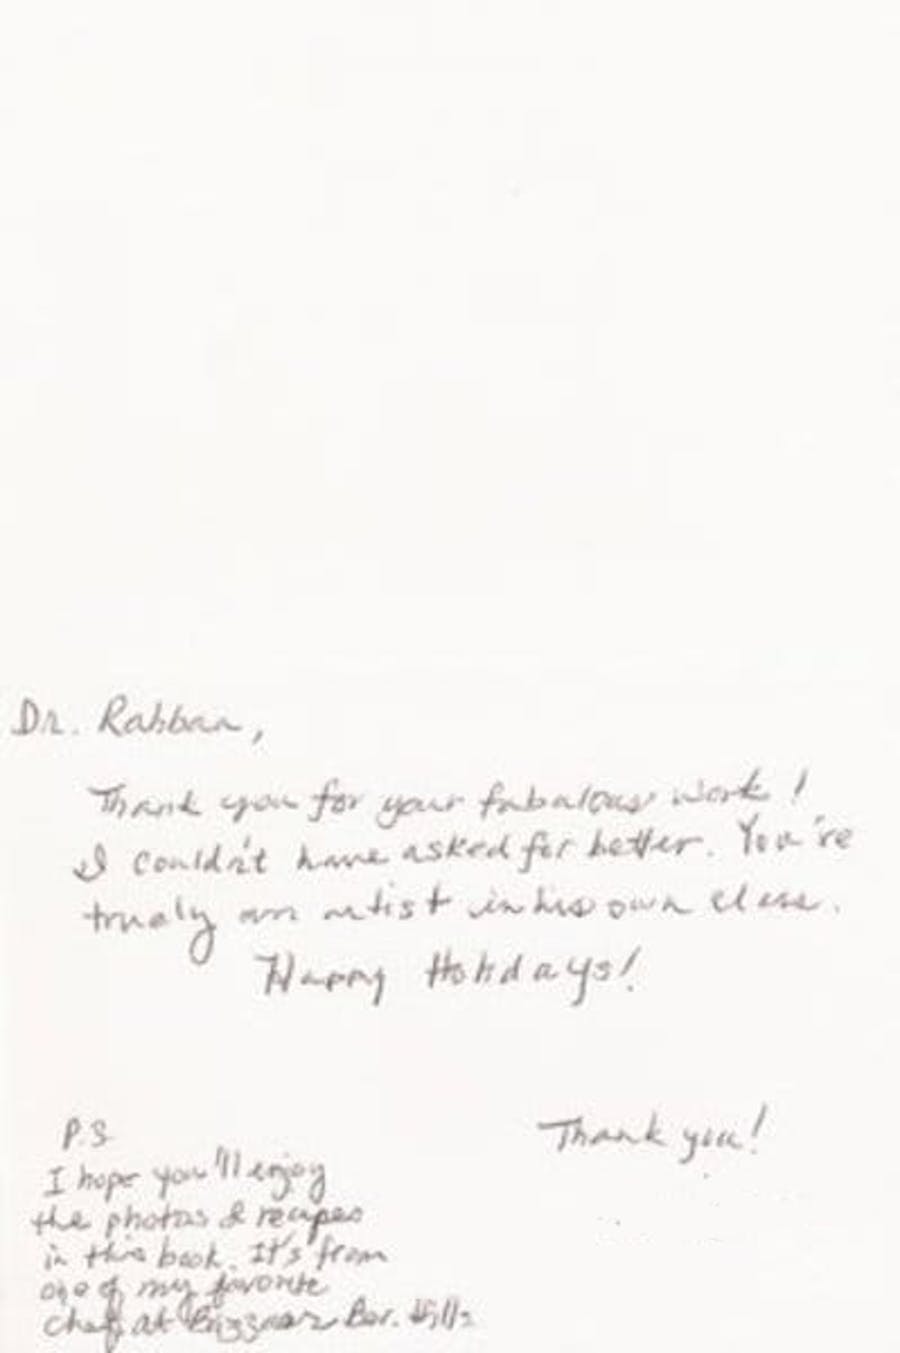 Dr. Rahban,
Thank you for your fabulous work!
I couldn't have asked for better. You're
truely an artist in his own class.
Happy Holidays!
Thank you!
P.S
I hope you'll enjoy
the photos & recipes
in this book. It's from
one of my favorite
chefs at Bev. Hills